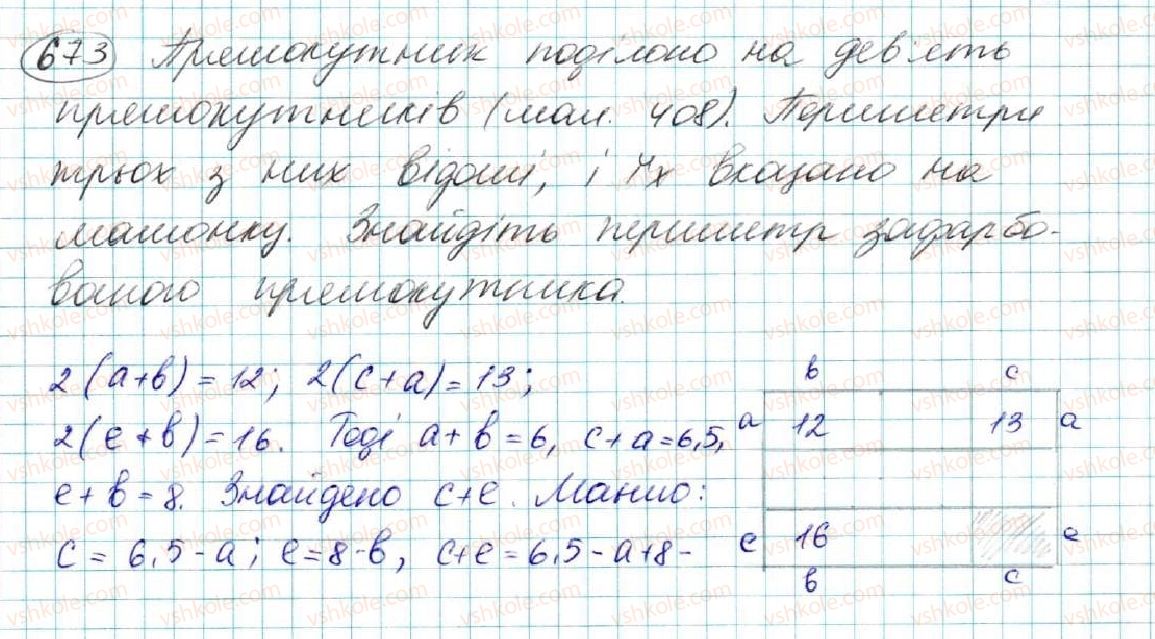 673 Прямокутник поділено на дев'ять
прямокутників (мал. 408). Периметри
трьох з них відомі, і їх вказано на
малюнку. Знайдіть периметр зафарбо-
ваного прямокутника.
2(a+b)=12; 2(c+a)=13;
2(e+b)=16. Тоді a+b=6, c+a=6,5,
e+b=8. Знайдемо c+e. Маємо:
c=6,5-a; e=8-b, c+e=6,5-a+8-
b c
a 12 13 a
e 16 e
b c